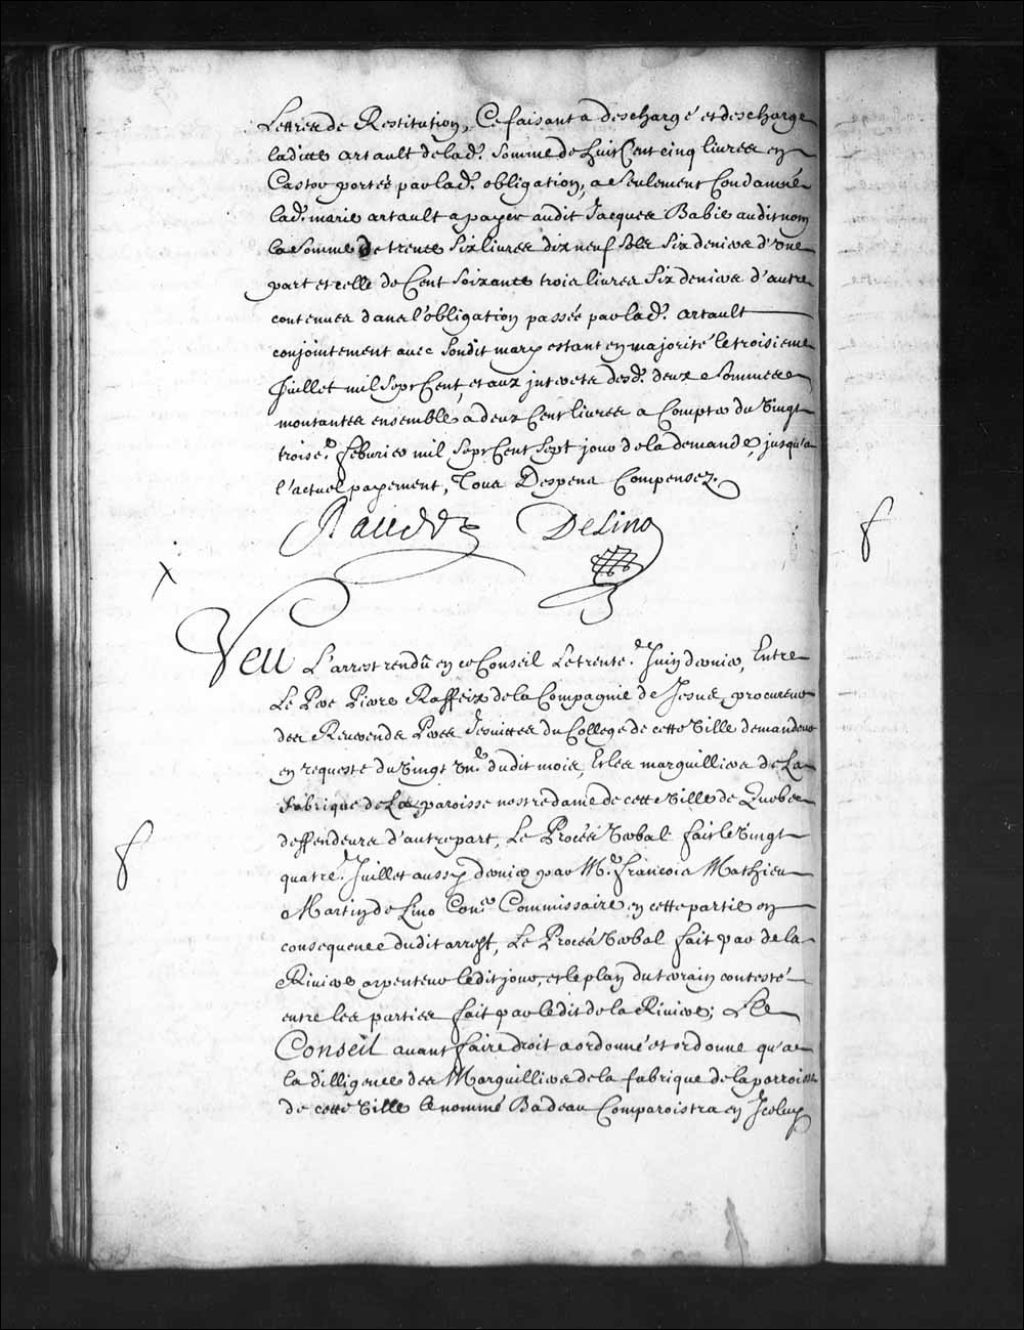 Lettres de Restitution, Ce faisant a deschargé et descharge
ladite artault de lad.e somme de huit Cent cinq livres en
Castor portée par lad.e obligation, a seulement Condamné
lad.e marie artault a payer audit Jacques Babie audit nom
la somme de trente six livres dix neuf sols six deniers d'une
part et celle de Cent soixante trois livres six deniers d'autre
contenues dans l'obligation passée par lad.e artault
conjointement avec sondit mary estant en majorité le troisieme
Juillet mil sept Cent, et aux interests desd.es deux sommes
montantes ensemble a deux Cent livres a Compter du Vingt
troise.e febvrier mil sept Cent sept jour de la demande, jusqu'a
l'actuel payement, Tous Despens Compensez.
Raudot DeLino
Veu L'arrest rendu en ce Conseil Le trente.e Juin dernier, Entre
Le Pere Pierre Raffeix de la Compagnie de Jesus, procureur
des Reverends Peres Jesuittes du College de cette Ville demandeur
en requeste du Vingt un.e dudit mois, Et les marguilliers de La
fabrique de La paroisse nostre dame de cette Ville de Quebec
deffendeurs d'autre part, Le Procés Verbal fait le Vingt
quatre.e Juillet aussy dernier par M.e francois Mathieu
Martin de Lino Con.er Commissaire en cette partie en
consequence dudit arrest, Le Procés Verbal fait par de la
Riviere arpenteur ledit jour, et le plan du terrain contesté
entre les parties fait par ledit de la Riviere; Le
Conseil avant faire droit a ordonné et ordonne qu'a
la dilligence des Marguilliers de la fabrique de la parroisse
de cette Ville le nommé Badeau Comparoistra en Iceluy